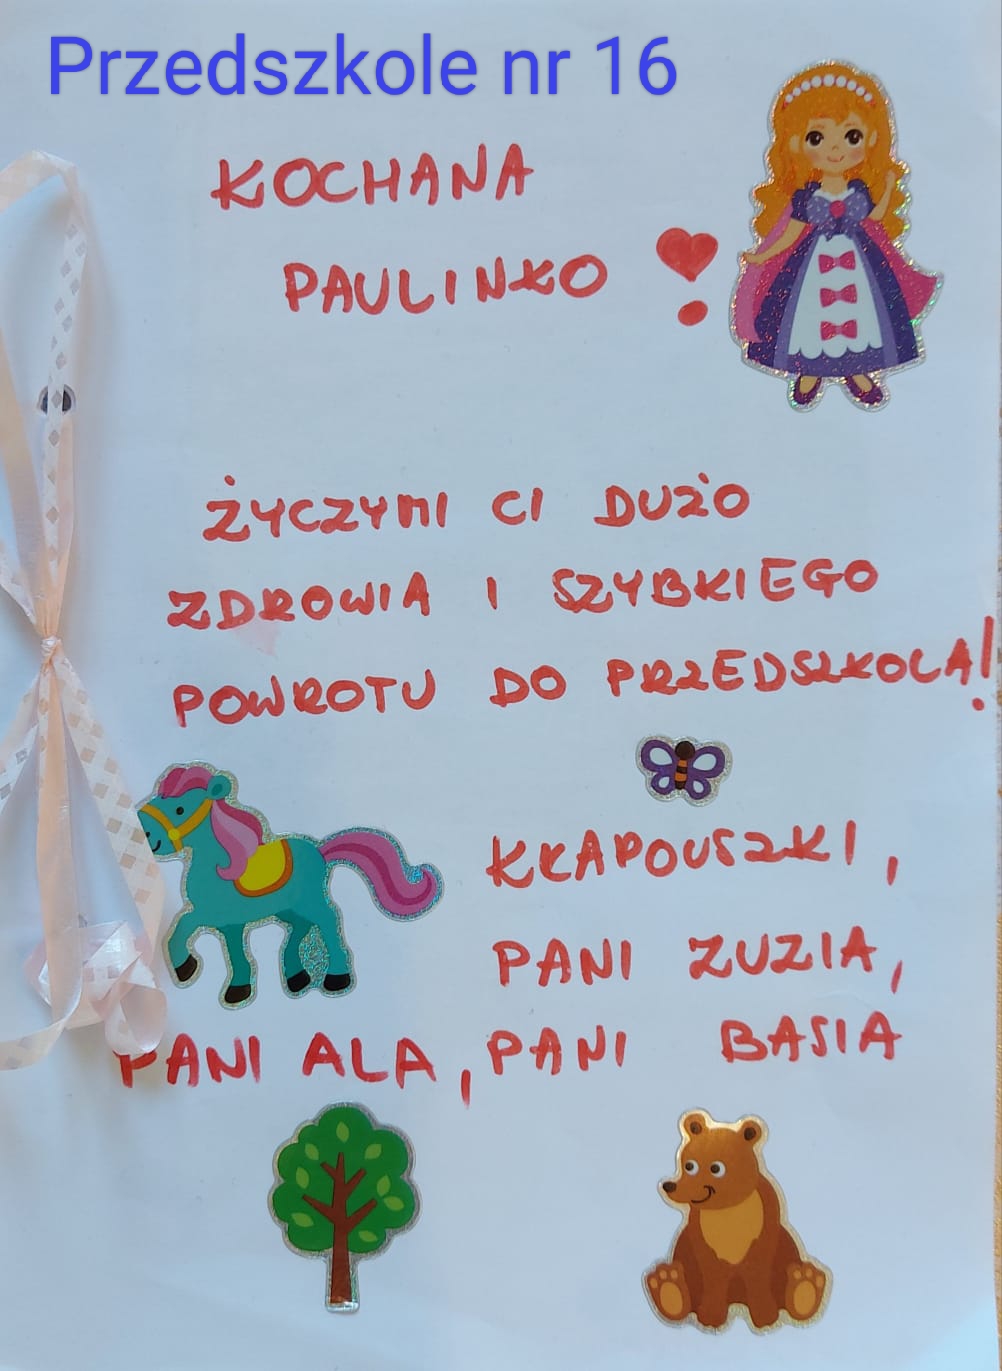 Przedszkole nr 16
KOCHANA
PAULINKO
ŻYCZYMY CI DUŻO
ZDROWIA I SZYBKIEGO
POWROTU DO PRZEDSZKOLA!
KŁAPOUSZKI,
PANI ZUZIA,
PANI ALA, PANI BASIA